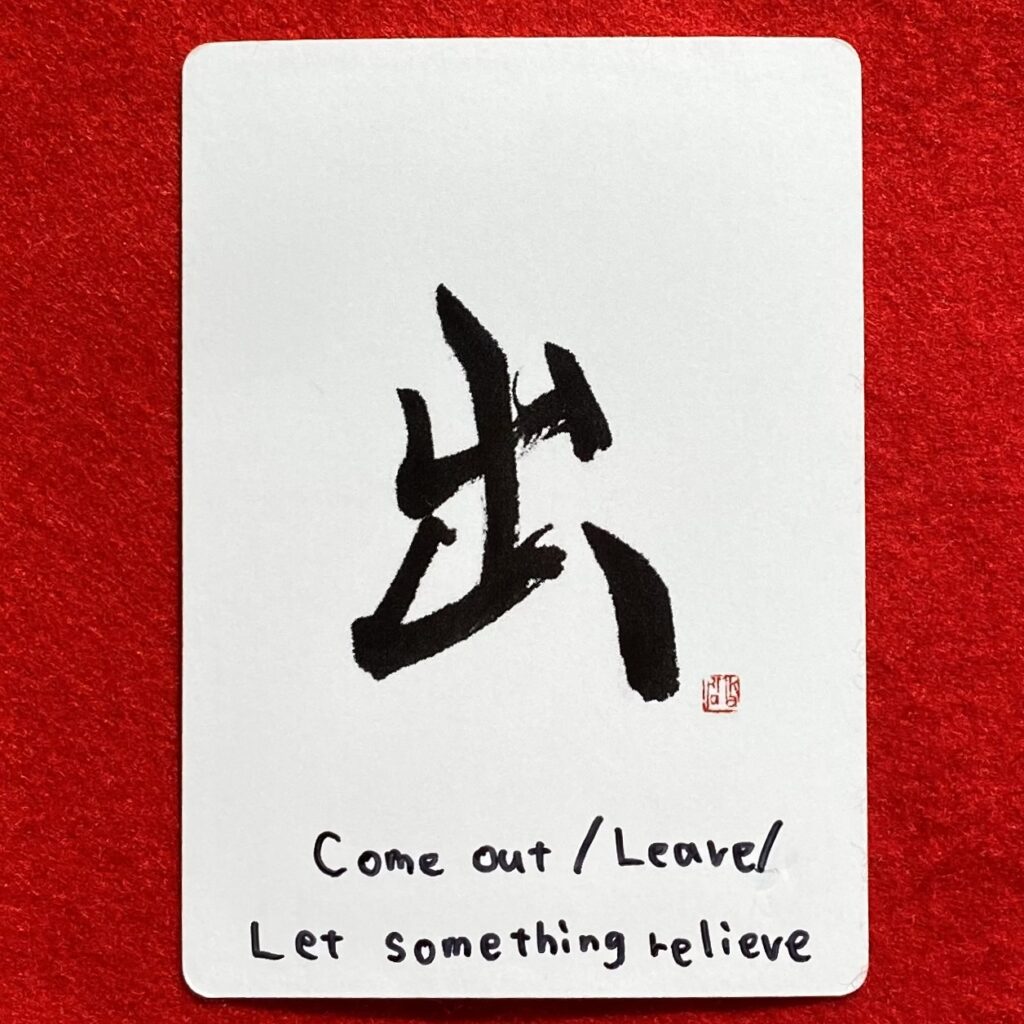 出
Come out / Leave/
Let something relieve